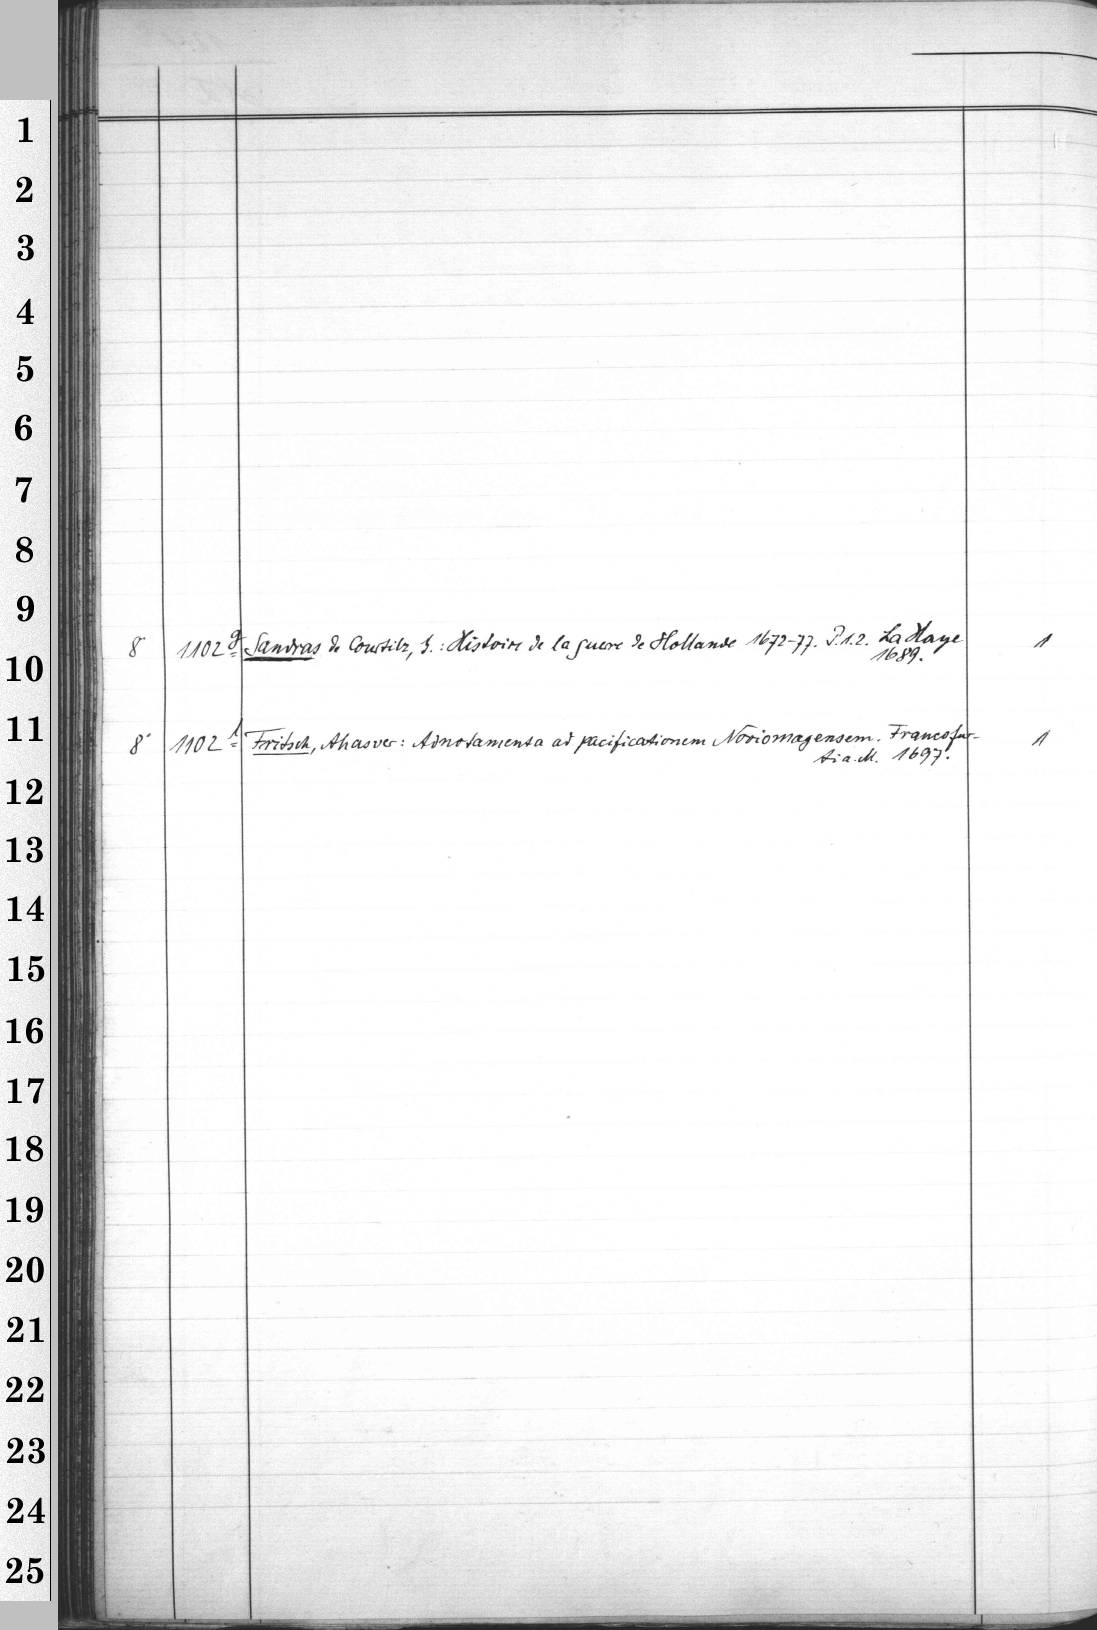 1
2
3
4
5
6
7
8
9
8° 1102 g Sandras de Courtilz, G.: Histoire de la guerre de Hollande 1672-77. P. 1.2. La Haye 1
1689.
10
11
8° 1102 l Fritsch, Ahasver: Adnotamenta ad pacificationem Noviomagensem. Francofur- 1
ti a. M. 1697.
12
13
14
15
16
17
18
19
20
21
22
23
24
25